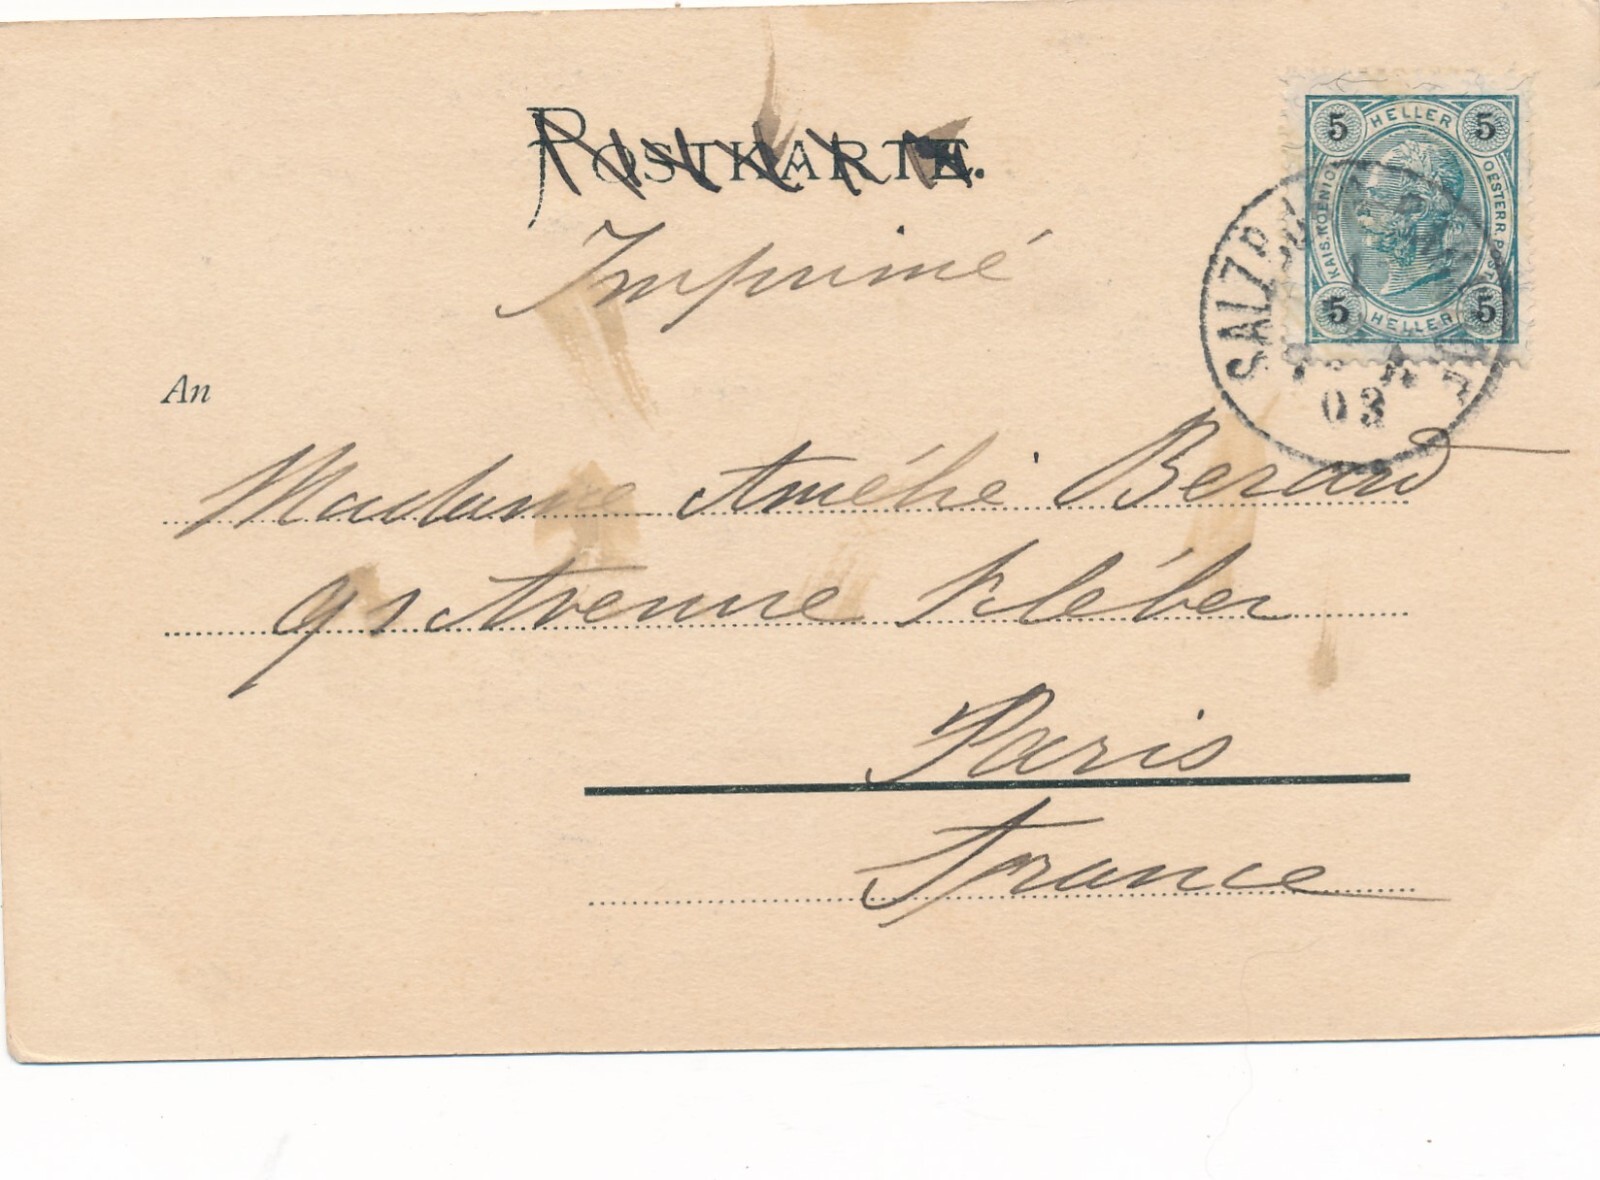 POSTKARTE.
Imprimé
5 HELLER 5
KAIS. KOENIGL. OESTERR. POST
5 HELLER 5
SALZBURG
03
An
Madame Amélie Berard
91 Avenue Kléber
Paris
France